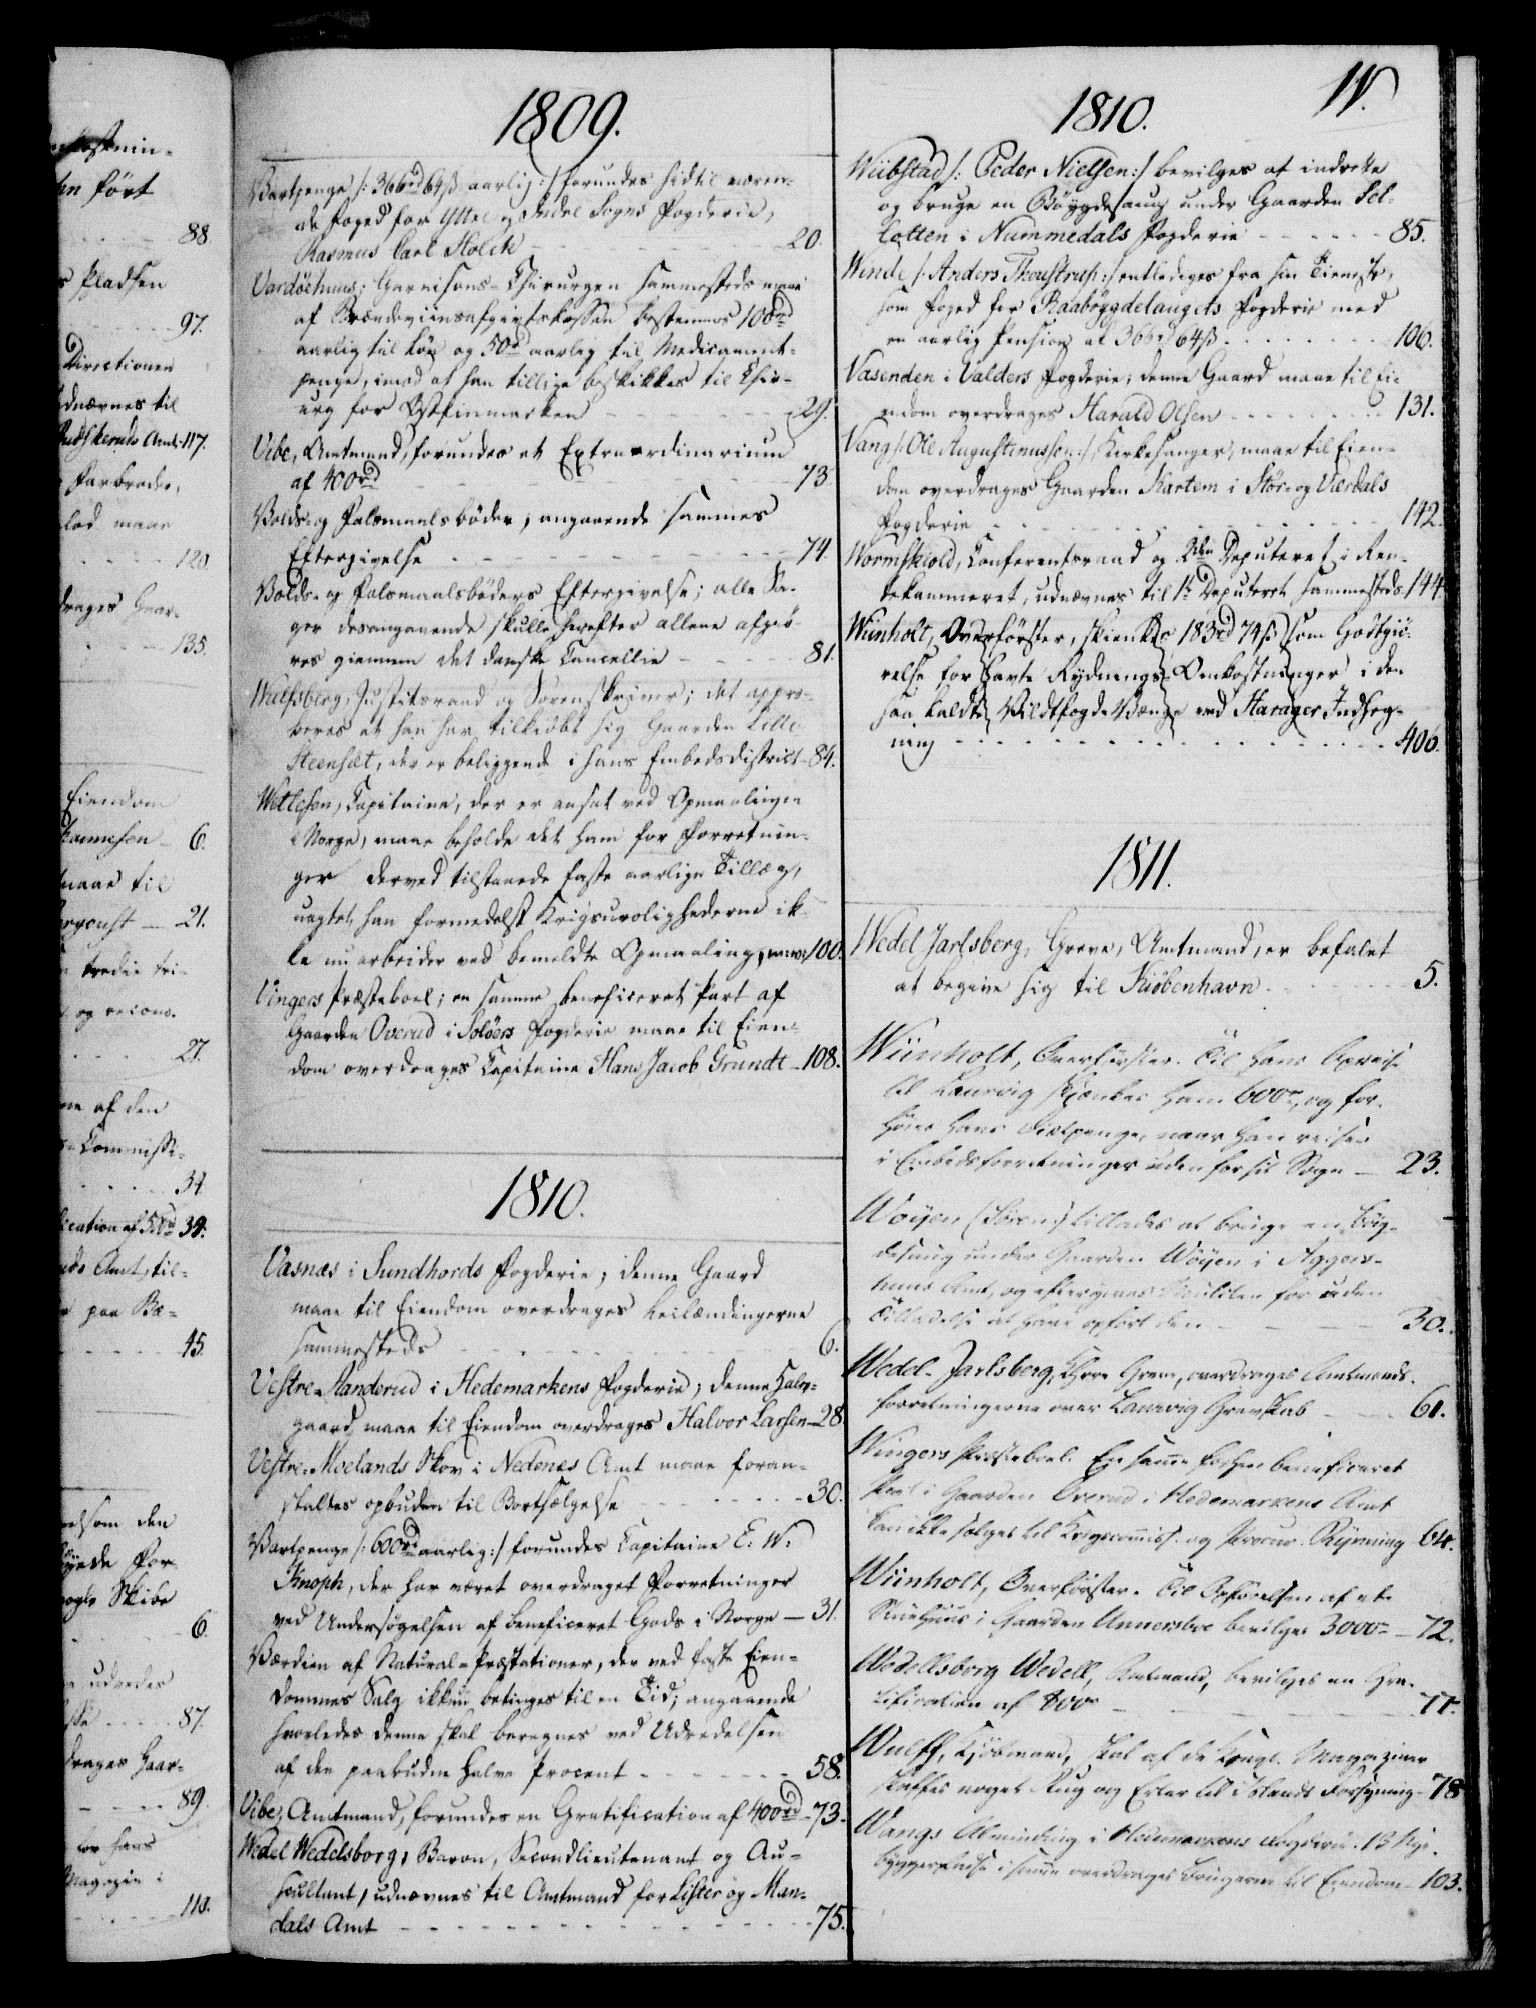 kostnin-
hn ført
88.
s Pladsen
97.
Directionen
udnævnes til
Budskeruds Amt 117.
Farbroder,
lod maae
120.
drages Gaar-
135.
Eiendom
Hannesen 6.
maae til
21.
tredie tri-
og recom.
27.
ne af den
s-Commissi-
34.
fication af 50rd 34.
uds Amt, til-
paa Bæ-
45.
velsom den
øiede For-
nogle Skibe
6.
udredes
87.
drages Gaar-
89.
for hans
Magazin i
118.
1809.
Vartpenge /: 366rd 64ß aarlig :/ forundes hidtil væren-
de Foged for Yttre og Indre Sogns Fogderie,
Rasmus Carl Holck 20.
Vardøehuus; Garnisons-Chirurgen sammesteds maae
af Brændeviinsafgiftskassen bestemmes 100rd
aarlig til Løn og 50rd aarlig til Medicament-
penge, imod at han tillige beskikkes til Chir-
urg for Østfinmarken 29.
Vibe, Amtmand, forundes et Extraordinarium
af 400rd 73.
Volds- og Falsmaalsbøder, angaaende sammes
Eftergivelse 74.
Volds- og Falsmaalsbøders Eftergivelse; alle Sa-
ger desangaaende skulle herefter allene afgiø-
res giennem det danske Cancellie 81.
Wulfsberg, Justitsraad og Sorenskriver; det appro-
beres at han har tilkiøbt sig Gaarden Lille
Steensæt, der er beliggende i hans Embedsdistrict 84.
Wetlesen, Capitaine, der er ansat ved Opmaalingen
i Norge, maae beholde det ham for Forretnin-
ger derved tilstaaede faste aarlige Tillæg,
uagtet han formedelst Krigsurolighederne ik-
ke nu arbeider ved bemeldte Opmaaling 100.
Vingers Præsteboel; en samme beneficeret Part af
Gaarden Overud i Soløers Fogderie maae til Eien-
dom overdrages Capitaine Hans Jacob Grundt 108.
1810.
Vasnæs i Sundhords Fogderie; denne Gaard
maae til Eiendom overdrages Leilændingerne
sammesteds 6.
Vestre-Handerud i Hedemarkens Fogderie; denne Halv-
gaard maae til Eiendom overdrages Halvor Larsen 28.
Vestre-Moelands Skov i Nedenes Amt maae foran-
staltes opbuden til Bortsælgelse 30.
Vartpenge /: 600rd aarlig :/ forundes Capitaine E: W:
Knoph, der har været overdraget Forretninger
ved Undersøgelsen af beneficeret Gods i Norge 31.
Værdien af Natural-Præstationer, der ved faste Eien-
dommes Salg ikkun betinges til en Tid; angaaende
hvorledes denne skal beregnes ved Udredelsen
af den paabudne halve Procent 58.
Vibe, Amtmand, forundes en Gratification af 400rd 73.
Wedel Wedelsborg, Baron, Secondlieutenant og Au-
scultant, udnævnes til Amtmand for Lister og Man-
dals Amt 75.
W.
1810.
Wiibstad /: Peder Nielsen :/ bevilges at indrette
og bruge en Bøygdesaug under Gaarden Sol-
lotten i Nummedals Fogderie 85.
Winde /: Anders Thoustrup :/ entlediges fra sin Tieneste,
som Foged for Raabøygdelaugets Fogderie med
en aarlig Pension af 366rd 64ß 106.
Vasenden i Valders Fogderie; denne Gaard maae til Ei-
endom overdrages Harald Olsen 131.
Vang /: Ole Augustinussen :/ Kirkesanger, maae til Eien-
dom overdrages Gaarden Kartem i Stør- og Værdals
Fogderie 142.
Wormskiold, Conferentsraad og 2den Deputeret i Ren-
tekammeret, udnævnes til 1te Deputeret sammesteds 144.
Wiinholt, Overførster, skienkes 183rd 74ß som Godtgiø-
relse for havte Rydnings-Omkostninger i den
saa kaldte Vildtfoged-Vænge ved Harager Indheg-
ning 406.
1811.
Wedel Jarlsberg, Greve, Amtmand, er befalet
at begive sig til Kiøbenhavn 5.
Wiinholt, Overførster. Til hans Opreise
til Laurvig skiænkes ham 600rd, og for-
høies hans Diætpenge, naar han reiser
i Embedsforretninger uden for sit Sogn 23.
Wøyen (Søren) tillades at bruge en Bøig-
desaug under Gaarden Wøyen i Aggers-
huus Amt, og eftergives Mulcten for uden
Tilladelse at have opført den 30.
Wedel-Jarlsberg, Herr Greve, overdrages Amtmands-
forretningerne over Laurvig Grevskab 61.
Wingers Præsteboel. En samme beneficeret
Part i Gaarden Overud i Hedemarkens Amt
kan ikke sælges til Krigscommiss. og Procur. Rynning 64.
Wiinholt, Overførster. Til Opførelsen af et
Stuehuus i Gaarden Annersboe bevilges 3000rd 72.
Wedellsborg Wedell, Amtmand, bevilges en Gra-
tification af 400rd 77.
Wulff, Kjøbmand, skal af de Kongl. Magaziner
skaffes noget Rug og Erter til Islands Forsyning 78.
Wangs Alminding i Hedemarkens Fogderie. 13 Nye-
byggerpladse i samme overdrages Brugerne til Eiendom 103.